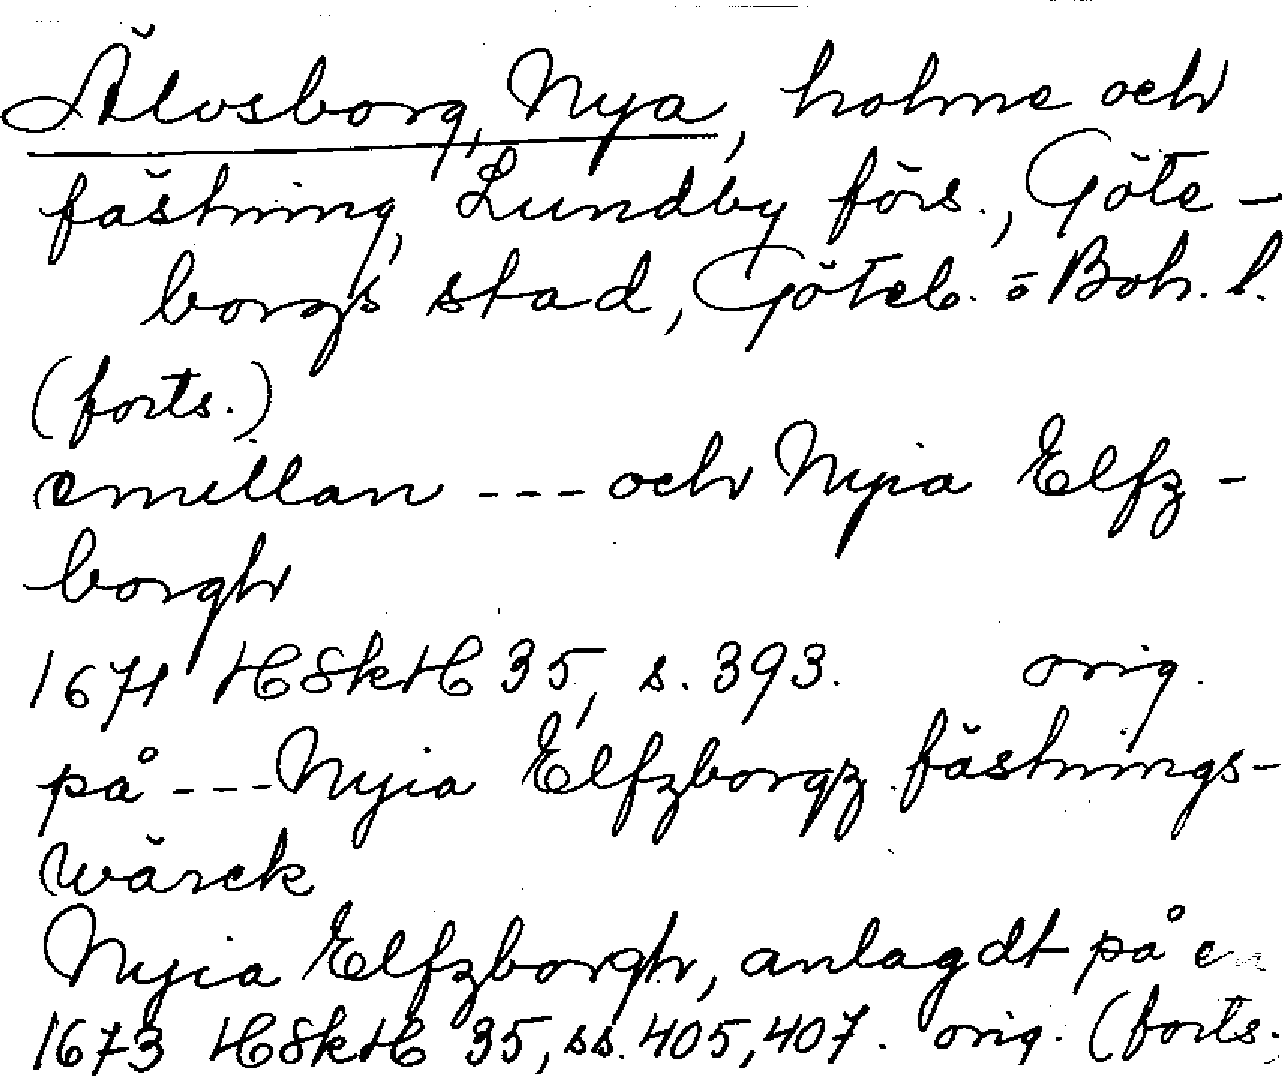 Älvsborg, Nya, holme och
fästning, Lundby förs., Göte-
borgs stad, Göteb. o Boh. l.
(forts.)
emillan --- och Nyia Elfz-
borgh
1671 HSkH 35, s. 393. orig.
på --- Nyia Elfzborgz fästnings-
wärck
Nyia Elfzborgh, anlagdt på en
1673 HSkH 35, ss. 405, 407. orig. (forts.